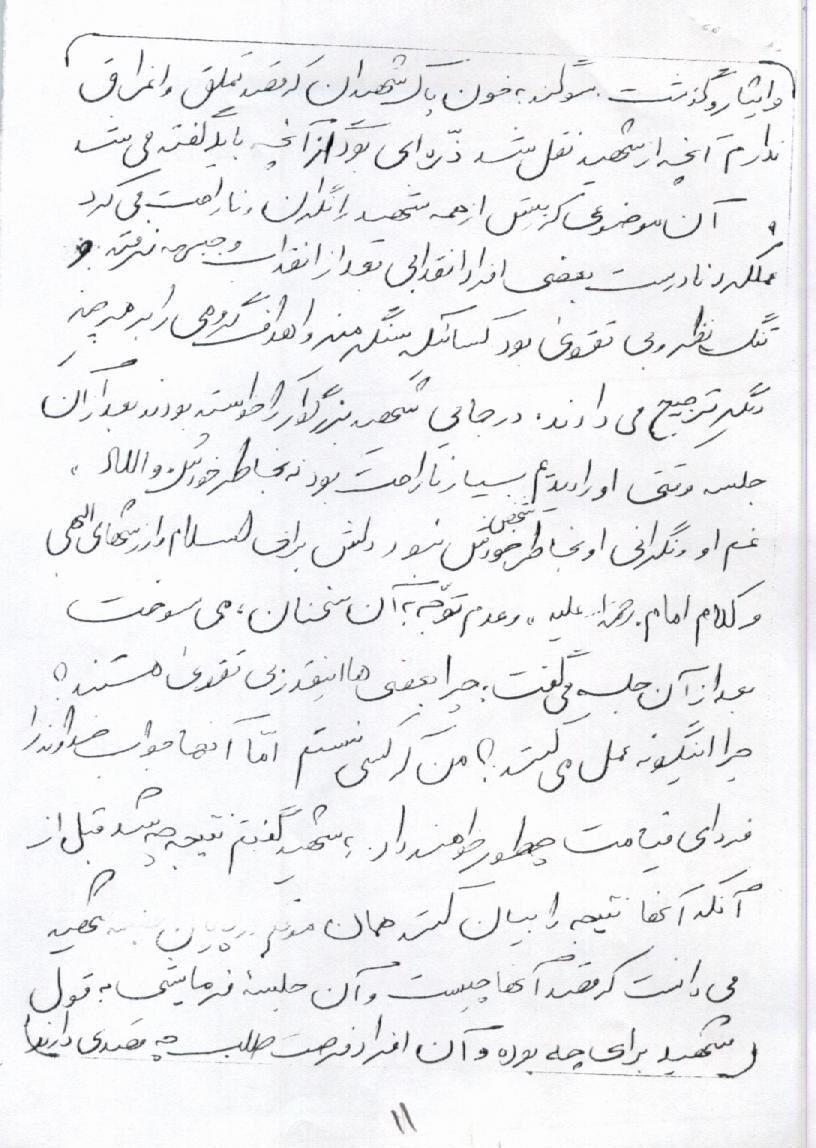 و ایثار و گذشت. سوگند به خون پاک شهیدان که قصد تملق و اغراق
ندارم آنچه از شهید نقل شد ذرّه‌ای بود از آنچه باید گفته می‌شد
آن موضوعی که بیش از همه شهید را نگران و ناراحت می‌کرد
عملکرد نادرست بعضی افراد انقلابی بعد از انقلاب و جبهه نرفته و
تنگ نظر و بی تقوی بود کسانیکه سنگر من و اهداف گروهی را بر هر چیز
دیگر ترجیح می‌دادند. در جایی شهید بزرگوار را خواسته بودند بعد از آن
جلسه وقتی او را دیدیم بسیار ناراحت بود نه بخاطر خودش واللّه،
غم او و نگرانی او بخاطر شخص خودش نبود دلش برای اسلام و ارزشهای الهی
و کلام امام «رحمة‌الله علیه» و عدم توجّه به آن سخنان، می سوخت
بعد از آن جلسه می‌گفت: چرا بعضی ها اینقدر بی تقوی هستند؟
چرا اینگونه عمل می‌کنند؟ من که کسی نیستم امّا آنها جواب خداوند را
فردای قیامت چطور خواهند داد. به شهید گفتم نتیجه چه شد قبل از
آنکه آنها نتیجه را بیان کنند همان موقع در پایان جلسه شهید
می دانست که قصد آنها چیست و آن جلسهٔ فرمایشی به قول
شهید برای چه بوده و آن افراد فرصت طلب چه قصدی دارند
۱۱